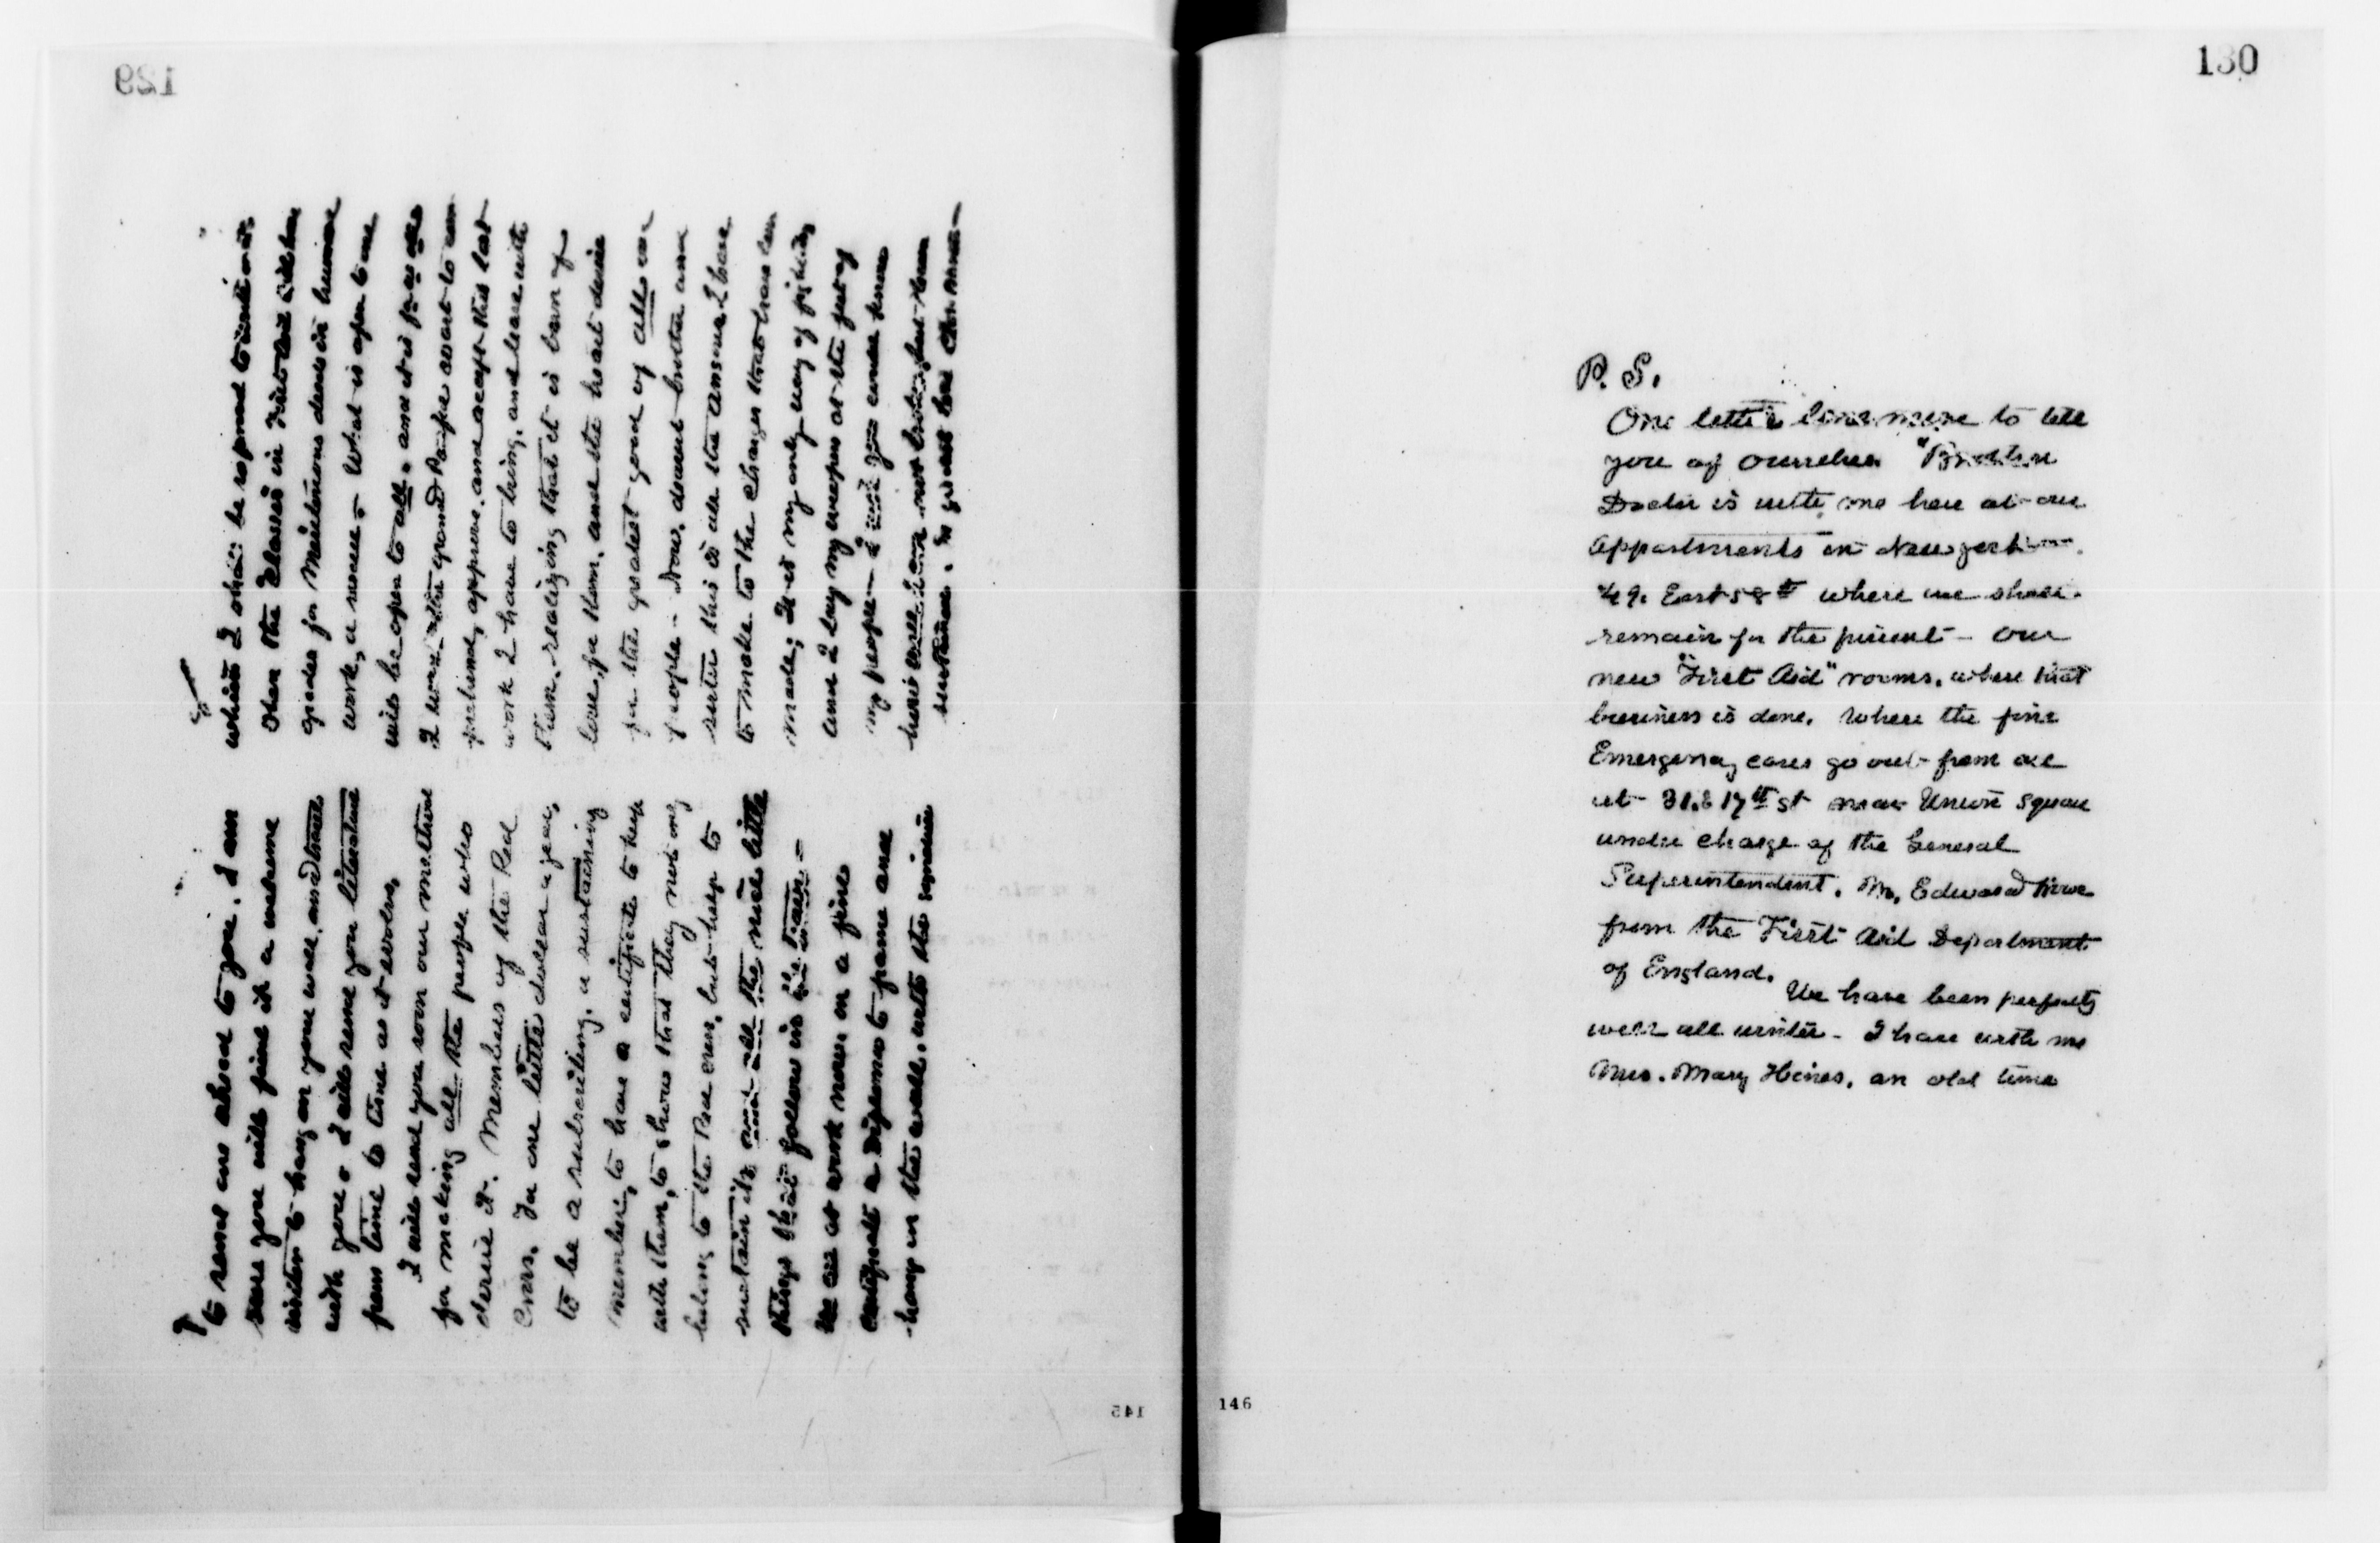 129
7
to send one ahead to you. I am
sure you will find it a welcome
visitor to hang on your wall and treat
with you. I will send you literature
from time to time as it evolves.
I will send you soon our method
for making all the people who
desire it. Members of the Red
Cross. For one little dollar a year,
to be a subscribing, a sustaining
member, to have a certificate to keep
with them, to show that they not only
belong to the Red Cross, but help to
sustain it, and all the nice little
things that follow in its train.
We are at work now on a fine
certificate a Diploma to frame and
hang on the wall, with the signature
8
which I shall be
then the classes in First Aid
grades for meritorious deeds in humane
work, a rescue. What is open to one
will be open to all. and it is for all
I want the grand People want to com
prehend, approve, and accept this last
work I have to bring, and leave with
them. realizing that it is born of
love, for them, and the heart desire
for the greatest good of all our
people. Now, dearest brother and
sister this is all the answer I have
to make to the charges that have been
made; It is my only way of fighting
and I lay my weapons at the feet of
my people
145
130
P. S.
One letter more to tell
you of ourselves "Brother
Doctor is with me here at our
appartments in New york
49. East 58th where we shall
remain for the present - our
new "First Aid" rooms, where that
business is done. Where the fine
Emergency cases go out from are
at 31.E 17th st near Union Square
under charge of the General
Superintendent. Mr. Edward Howe
from the First Aid Department
of England.
We have been perfectly
well all winter - I have with me
Mrs. Mary Hines, an old time
146